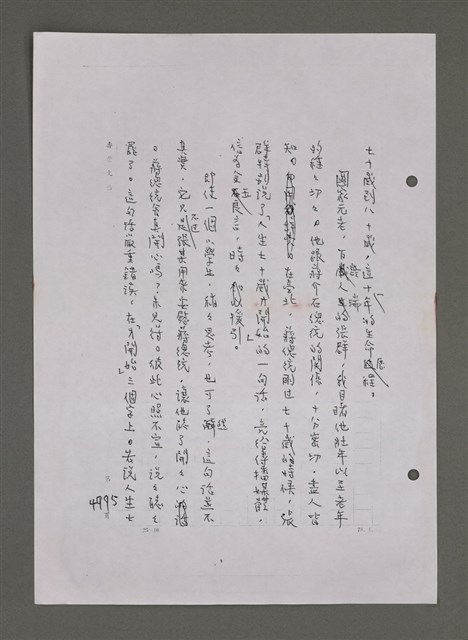 七十歲到八十歲，這十年的生命歷程。
國家元老，百歲人瑞的張群，我目睹他壯年以至老年
的種種切切。他跟蔣介石總統的關係，十分密切，盡人皆
知。在臺北，蔣總統剛過七十歲的時候，張
群特別說了「人生七十歲才開始」的一句話，
信為金玉良言，時加以援引。
即使一個小學生，緒思考，也可了解，這句話並不
真實，它只不過是張某用來安慰蔣總統，讓他聽了開開心
。蔣總統當真開心嗎？亦未必。彼此心照不宣，說說聽聽
罷了。這句話嚴重錯誤，在「才開始」三個字上。若說人生七
4995